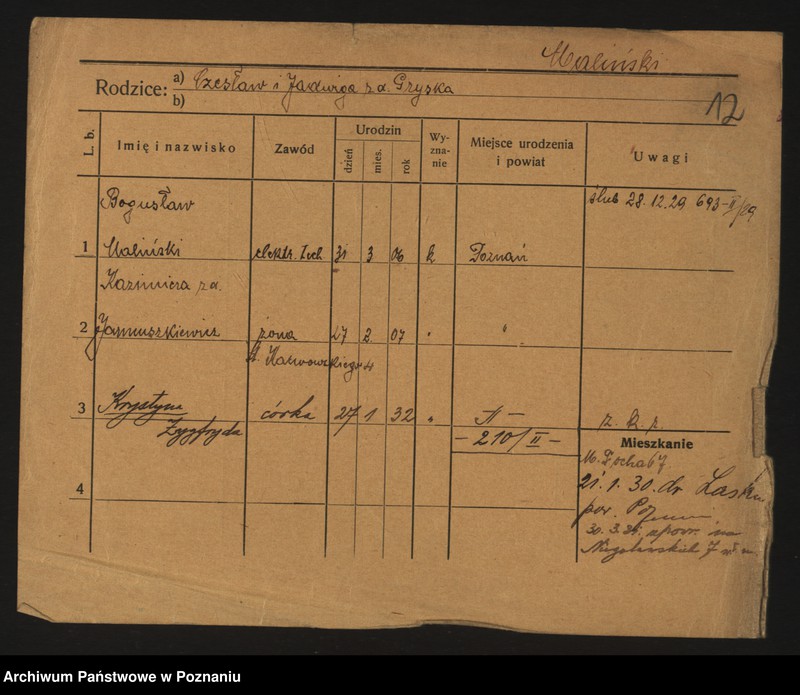 Maliński
Rodzice: a) Czesław i Jadwiga z d. Gryska
b)
12
L. b. Imię i nazwisko Zawód Urodzin dzień mies. rok Wy-zna-nie Miejsce urodzenia i powiat Uwagi
Bogusław ślub 28.12.29 693-II/29
1 Maliński elektr. tech 31 3 06 k Poznań
Kazimiera z d.
2 Januszkiewicz żona 27 2 07 " "
3 Krystyna córka 27 1 32 " -"-
Zygfryda - 210/II -
z. k. p.
Mieszkanie
M. Focha 67
4 21.1.30. do
pow.
30.3.31. z powr. na
7
Archiwum Państwowe w Poznaniu